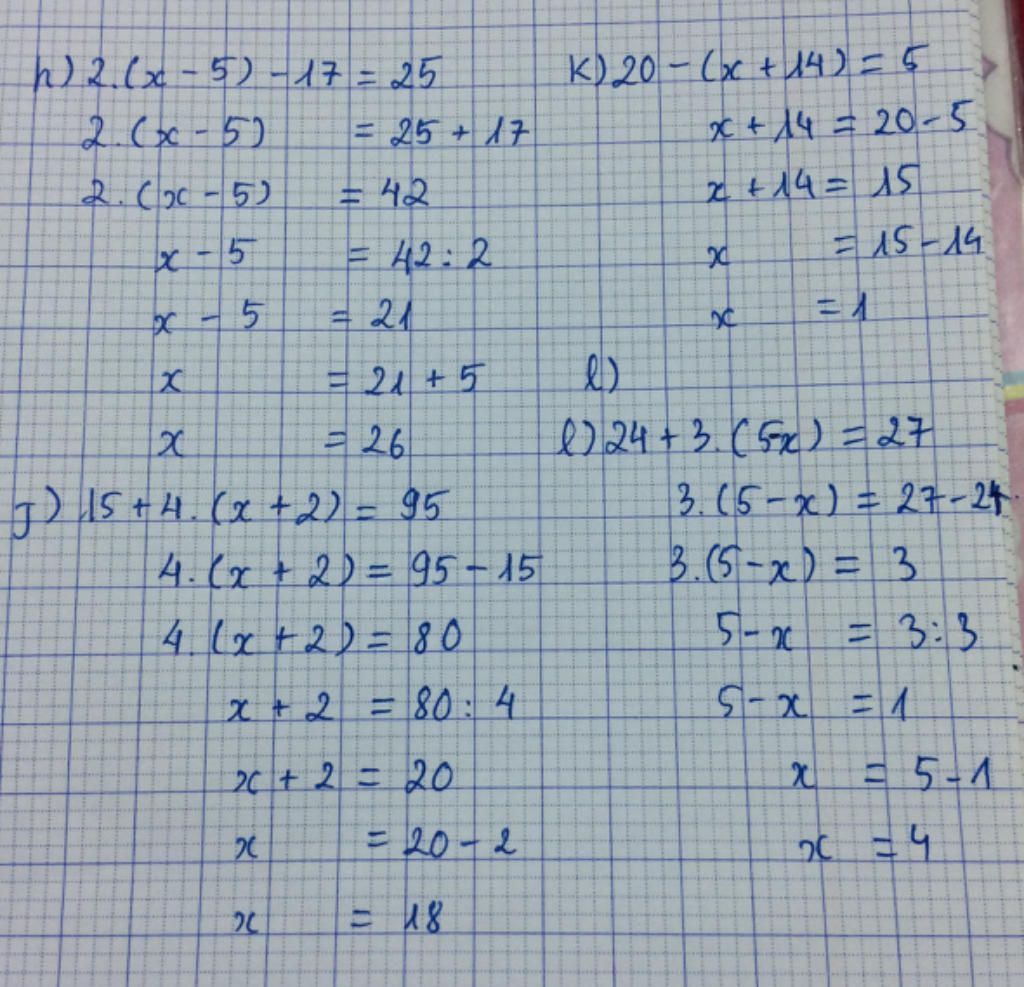 h) 2.(x - 5) - 17 = 25
2.(x - 5) = 25 + 17
2.(x - 5) = 42
x - 5 = 42 : 2
x - 5 = 21
x = 21 + 5
x = 26
J) 15 + 4.(x + 2) = 95
4.(x + 2) = 95 - 15
4.(x + 2) = 80
x + 2 = 80 : 4
x + 2 = 20
x = 20 - 2
x = 18
K) 20 - (x + 14) = 5
x + 14 = 20 - 5
x + 14 = 15
x = 15 - 14
x = 1
l)
l) 24 + 3.(5-x) = 27
3.(5 - x) = 27 - 24
3.(5 - x) = 3
5 - x = 3 : 3
5 - x = 1
x = 5 - 1
x = 4